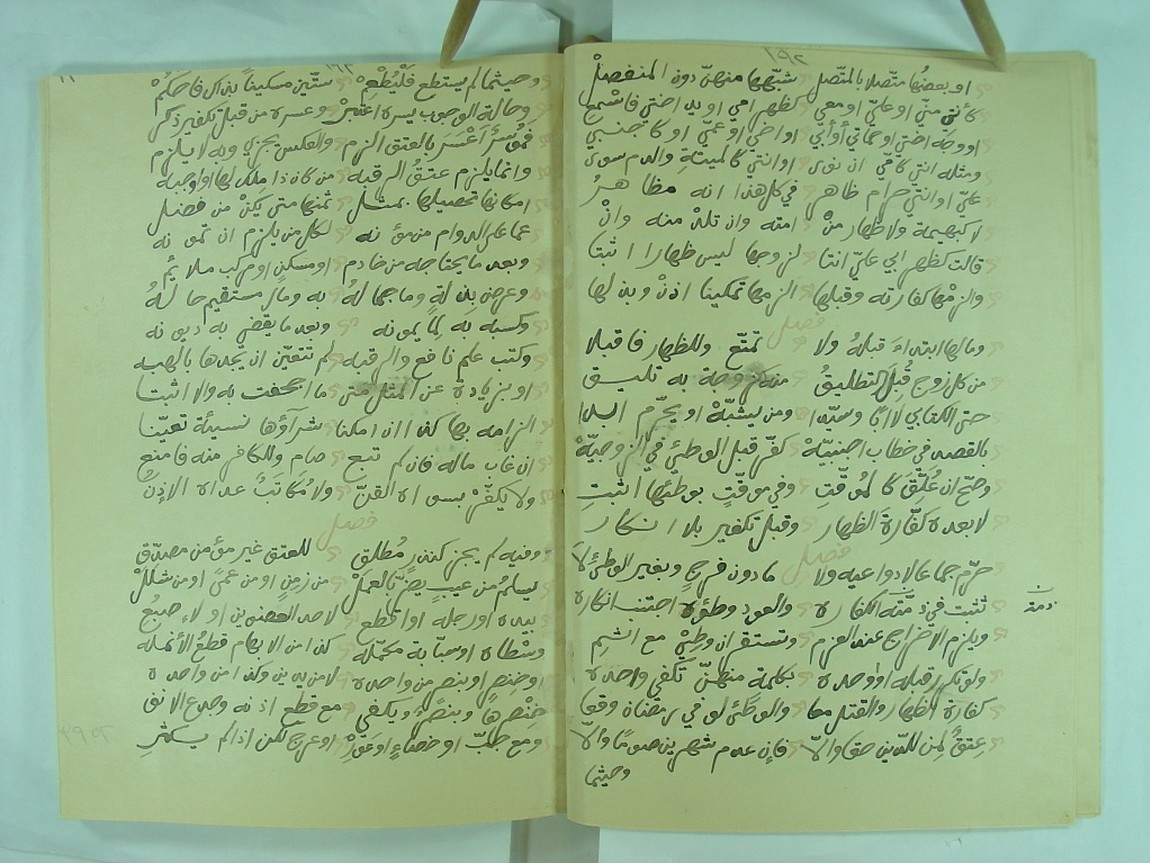 ١٩٢
او بعضها متصلا بالمتصل شبّهها منهنّ دون المنفصل
كأنتِ منّي او عليّ او معي كظهر امي او يد اختي فاسمع
او وجه اختي او حماتي أو أبي او اخي او عمّي او كاجنبي
ومثله انتي كأمّي ان نوى او انتي كالميتةِ والدم سوى
عليّ او انتي حرام ظاهر في كل هذا انه مظاهرُ
لا كبهيمة ولا ظهار منْ امته وان تلدْ منه وانْ
قالت كظهر ابي عليّ انتا لزوجها ليس ظهارا اثبتا
والزمْها كفارته وقبلها الزمها تمكينا اذنْ وبدلها
وما لها ابتداء قبلهُ ولا تمتّع وللظهار فاقبلا
فصل
من كل زوج قُبِلَ التطليقُ منه كزوجة به تليق
حتى الكتابي لا ابًا وسيّدا ومن يشبّهْ او يحرّم البلدا
بالقصد في خطاب اجنبيّهْ كفّر قبل الوطئ في الزوجيّهْ
وصحّ ان عُلّقَ كالموقّتِ وفي موقّتٍ بوطئها اثبتِ
لا بعده كفّارةَ الظهار وقبل تكفير بلا انكار
فصل
حرّم جماعا لا دواعيه ولا ما دون فرجٍ وبغير الوطئ لا
تثبت في ذمّته الكفاره والعود وطؤه اجتنب انكاره
ذمته
ويلزم الاخراج عند العزم وتستقر ان وطِئْ مع اثم
ولو تكرر قبله او وحده بكلمة منهنّ تكفي واحده
كفارة الظهار والقتل معا والوطئ لو في رمضان وقعا
عتقٌ لمن للدّين حقا والا فان عدم شهرين صوما والا
وحيثما
وحيثما لم يستطع فليُطعِمْ ستّين مسكيناً بذاك فاحكمْ
وحالة الوجوب يسره اعتبرْ وعسره من قبل تكفير ذكر
فموسرٌ أعْسَرَ بالعتق الزم والعكس يجزي وبه لا يلزم
وانما يلزم عتقُ الرقبه من كان ذا ملك لها او اوجبه
امكانها تحصيلها بمثل ثمنها متى يكنْ من فضل
عما على الدوام من مؤنه لكل من يلزم ان تمونه
وبعد ما يحتاجه من خادم او مسكن او مركب ملايم
وعرض بذلةٍ وما جمالهُ به ومالٍ مستقيم حالهُ
وكسبه به لما يمونه وبعد ما يقضي به ديونه
وكتب علم نافع والرقبه لم تتعيّن ان يجدها بالهبه
او بزيادة عن المثل متى ما اجحفت به والا اثبتا
الزامه بها كذا ان امكنا شرآؤها نسيئة تعيّنا
ان غاب ماله فان لم تبع صام وللكافر منه فامنع
ولا يكفّرْ بسواه القنّ ولا مُكاتَبٌ عداه الاذنُ
فصل
وفيه لم يجز كنذرٍ مُطلقِ للعتق غير مؤمن مصدّق
يسلمُ من عيبٍ يضرّ بالعملْ من زمنٍ او من عمًى او من شللْ
بيده او رجله او اقطع لاحد العضوين او لاصبعُ
وسْطاه او سبّابة مكمّله كذا من الابهام قطعُ الأنمله
او خنصرٍ او بنصر من واحده لا من يدين وكذا من واحده
خنْصرِها وبنصرٍ ويكفي مع قطع اذنه وجدع الانف
ومع جبّ او خصاءٍ او عوَرْ او عرج لكن اذا لم يكثرِ